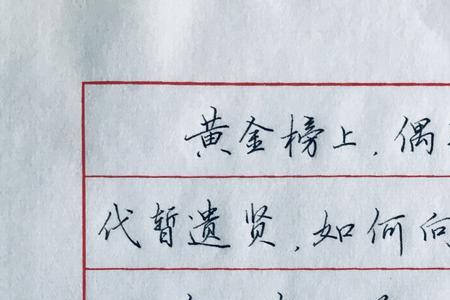 黄金榜上,偶
代暂遗贤,如何向